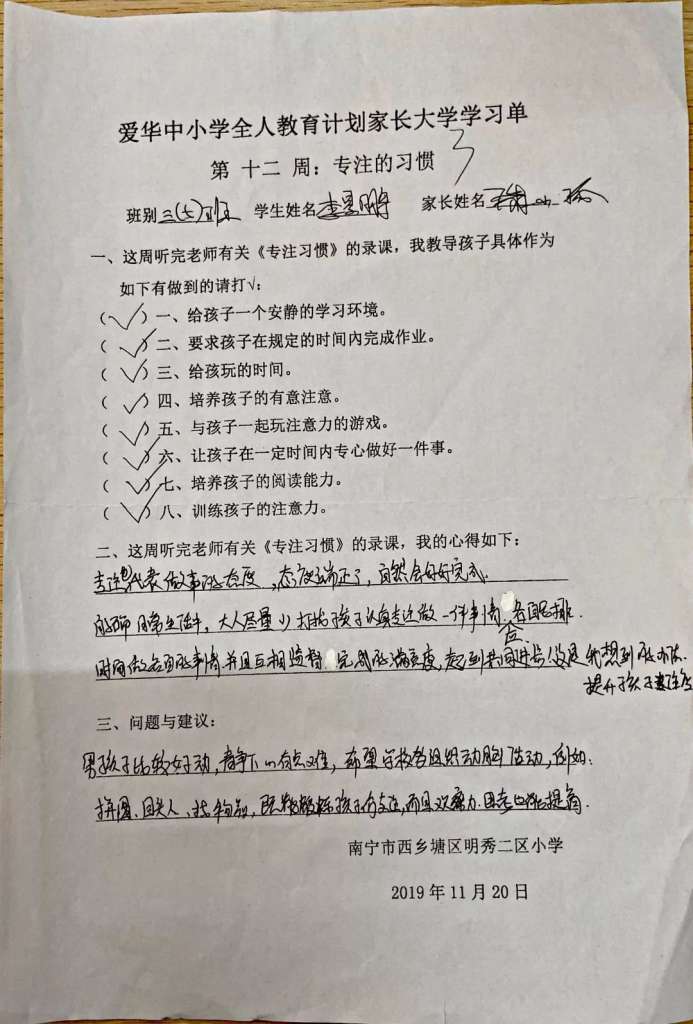 爱华中小学全人教育计划家长大学学习单
第 十二 周：专注的习惯
班别 三(5)班 学生姓名 李 家长姓名
一、这周听完老师有关《专注习惯》的录课，我教导孩子具体作为
如下有做到的请打√：
（ √ ）一、给孩子一个安静的学习环境。
（ √ ）二、要求孩子在规定的时间内完成作业。
（ √ ）三、给孩玩的时间。
（ √ ）四、培养孩子的有意注意。
（ √ ）五、与孩子一起玩注意力的游戏。
（ √ ）六、让孩子在一定时间内专心做好一件事。
（ √ ）七、培养孩子的阅读能力。
（ √ ）八、训练孩子的注意力。
二、这周听完老师有关《专注习惯》的录课，我的心得如下：
专注代表做事的态度，态度端正了，自然会好好完成.
日常生活中，大人尽量少打扰孩子认真专注做一件事情,各自
时间做各自的事情并且互相监督完成的满意度，起到共同进步！这是我想到的办法
提升孩子专注
三、问题与建议：
男孩子比较好动，静下心有点难，希望学校多组织动脑活动，例如：
拼图、找 ，既 孩子 交流，而且观察力.思考也能提高.
南宁市西乡塘区明秀二区小学
2019 年 11 月 20 日